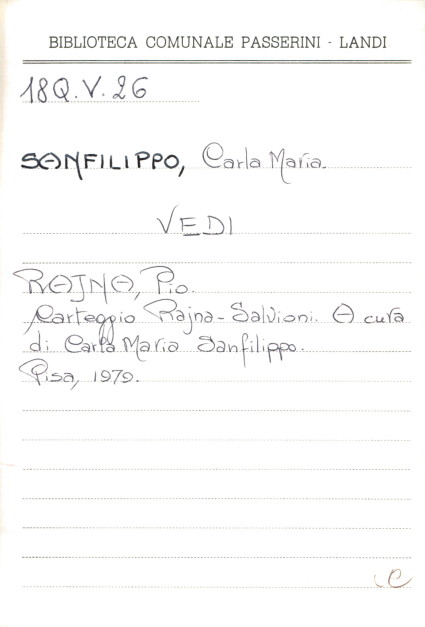 BIBLIOTECA COMUNALE PASSERINI - LANDI
18Q.V.26
SANFILIPPO, Carla Maria.
VEDI
RAJNA, Pio.
Carteggio Rajna-Salvioni. A cura
di Carla Maria Sanfilippo.
Pisa, 1979.
C